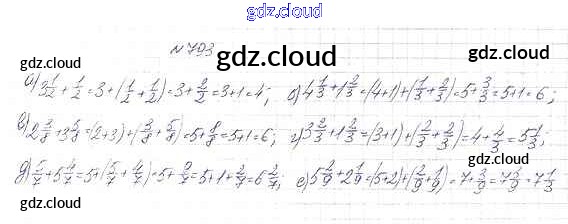 gdz.cloud
№793
gdz.cloud
gdz.cloud gdz.cloud
а) 3 1/2 + 1/2 = 3 + (1/2 + 1/2) = 3 + 2/2 = 3 + 1 = 4; б) 4 1/3 + 1 2/3 = (4+1) + (1/3 + 2/3) = 5 + 3/3 = 5 + 1 = 6;
в) 2 3/8 + 3 5/8 = (2+3) + (3/8 + 5/8) = 5 + 8/8 = 5 + 1 = 6; г) 3 2/3 + 1 2/3 = (3+1) + (2/3 + 2/3) = 4 + 4/3 = 5 1/3;
д) 5/7 + 5 4/7 = 5 + (5/7 + 4/7) = 5 + 9/7 = 5 + 1 + 2/7 = 6 2/7; е) 5 2/9 + 2 1/9 = (5+2) + (2/9 + 1/9) = 7 + 3/9 = 7 3/9 = 7 1/3
gdz.cloud gdz.cloud